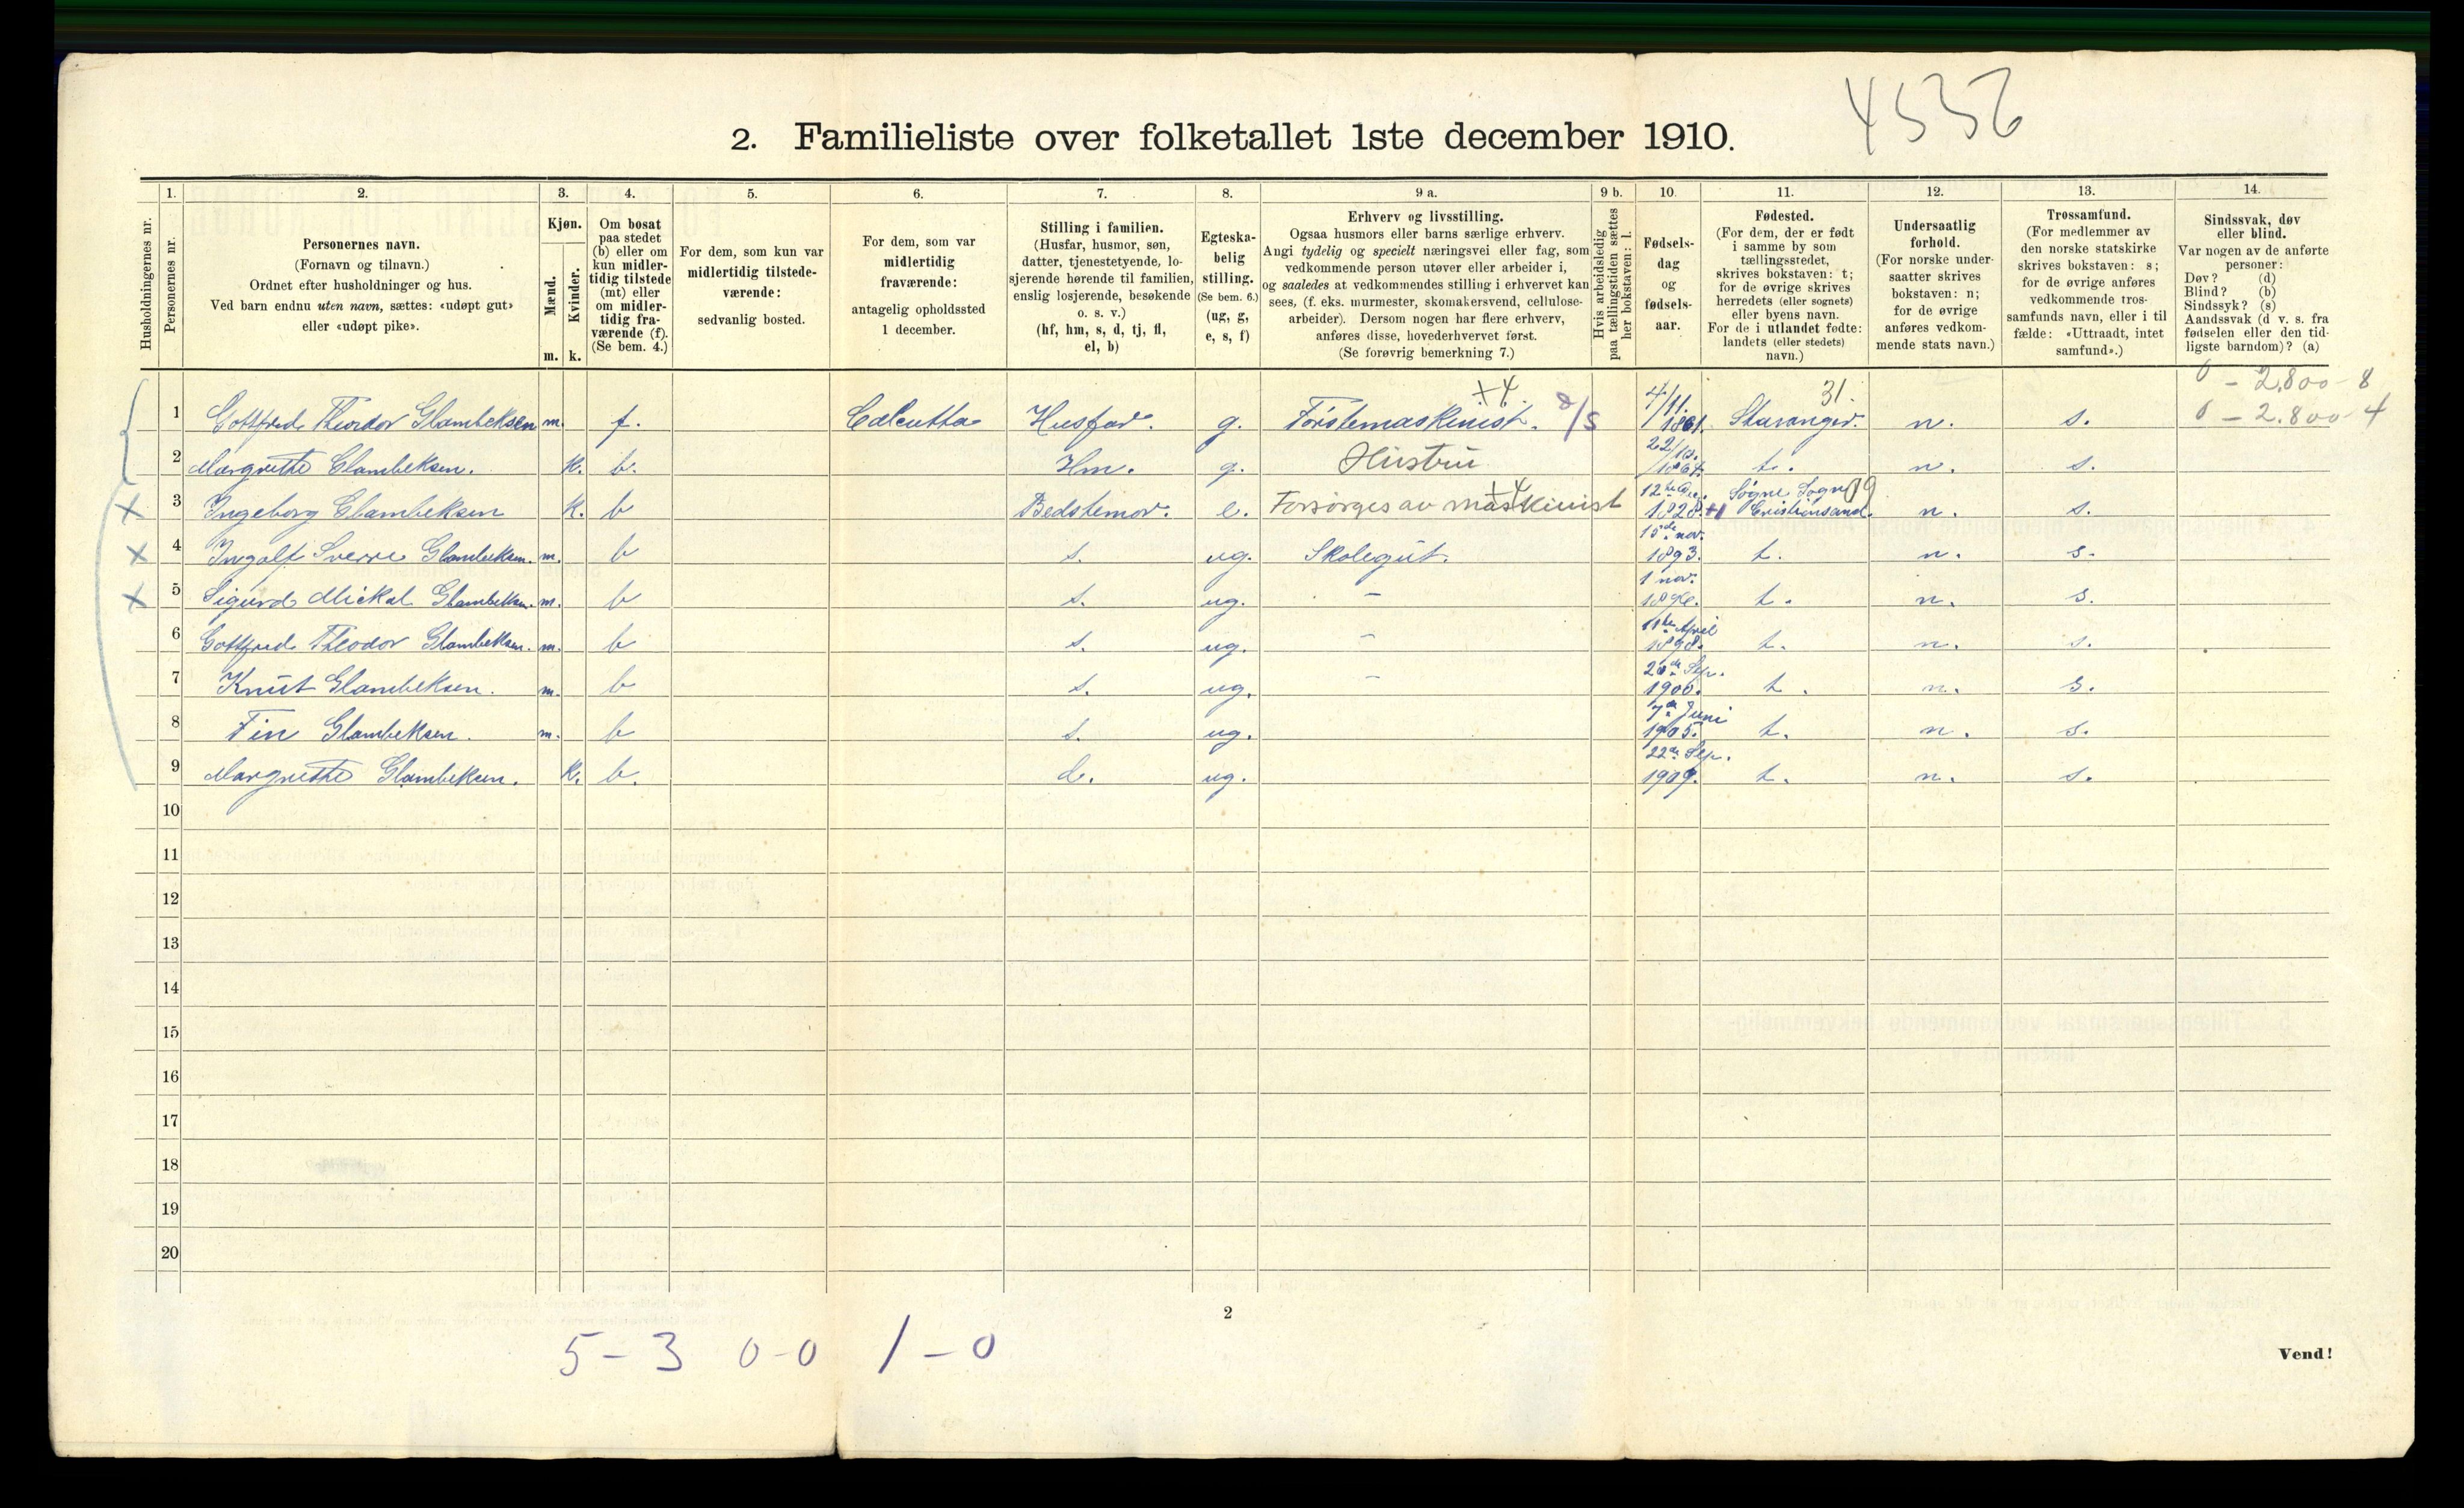 4536
2. Familieliste over folketallet 1ste december 1910.
Husholdningernes nr.
1.
Personernes nr.
2.
Personernes navn.
(Fornavn og tilnavn.)
Ordnet efter husholdninger og hus.
Ved barn endnu uten navn, sættes: «udøpt gut»
eller «udøpt pike».
3.
Kjøn.
Mænd.
Kvinder.
m. k.
4.
Om bosat
paa stedet
(b) eller om
kun midler-
tidig tilstede
(mt) eller
om midler-
tidig fra-
værende (f).
(Se bem. 4.)
5.
For dem, som kun var
midlertidig tilstede-
værende:
sedvanlig bosted.
6.
For dem, som var
midlertidig
fraværende:
antagelig opholdssted
1 december.
7.
Stilling i familien.
(Husfar, husmor, søn,
datter, tjenestetyende, lo-
sjerende hørende til familien,
enslig losjerende, besøkende
o. s. v.)
(hf, hm, s, d, tj, fl,
el, b)
8.
Egteska-
belig
stilling.
(Se bem. 6.)
(ug, g,
e, s, f)
9 a.
Erhverv og livsstilling.
Ogsaa husmors eller barns særlige erhverv.
Angi tydelig og specielt næringsvei eller fag, som
vedkommende person utøver eller arbeider i,
og saaledes at vedkommendes stilling i erhvervet kan
sees, (f. eks. murmester, skomakersvend, cellulose-
arbeider). Dersom nogen har flere erhverv,
anføres disse, hovederhvervet først.
(Se forøvrig bemerkning 7.)
9 b.
Hvis arbeidsledig
paa tællingstiden sættes
her bokstaven: l.
10.
Fødsels-
dag
og
fødsels-
aar.
11.
Fødested.
(For dem, der er født
i samme by som
tællingsstedet,
skrives bokstaven: t;
for de øvrige skrives
herredets (eller sognets)
eller byens navn.
For de i utlandet fødte:
landets (eller stedets)
navn.)
12.
Undersaatlig
forhold.
(For norske under-
saatter skrives
bokstaven: n;
for de øvrige
anføres vedkom-
mende stats navn.)
13.
Trossamfund.
(For medlemmer av
den norske statskirke
skrives bokstaven: s;
for de øvrige anføres
vedkommende tros-
samfunds navn, eller i til
fælde: «Uttraadt, intet
samfund».)
14.
Sindssvak, døv
eller blind.
Var nogen av de anførte
personer:
Døv? (d)
Blind? (b)
Sindssyk? (s)
Aandssvak (d v. s. fra
fødselen eller den tid-
ligste barndom)? (a)
+4. 31. 0 - 2.800 - 8
1 Gottfred Theodor Glambeksen m. f. Calcutta Husfar. g. Førstemaskinist. 8/5 4/11. 1861. Stavanger. n. s. 0 - 2.800 - 4
2 Margrethe Glambeksen. k. b. Hm. g. Hustru 22/10. t. n. s.
+4
X 3 Ingeborg Glambeksen k. b Bedstemor. e. Forsørges av maskinist 12te Dec. 1828 Søgne Sogn Cristiansand. n. s.
X 4 Ingolf Sverre Glambeksen. m. b s. ug. Skolegut. 15de nov. 1893. t. n. s.
X 5 Sigurd Mickal Glambeksen. m. b s. ug. - 1 nov. t. n. s.
6 Gottfred Theodor Glambeksen. m. b s. ug. - 11te April 1898. t. n. s.
7 Knut Glambeksen. m. b s. ug. - 20de Sep. 1900. t. n. s.
8 Fin Glambeksen. m. b s. ug. 7de Juni 1905. t. n. s.
9 Margrethe Glambeksen. k. b. d. ug. 22de Sep. 1909. t. n. s.
10
11
12
13
14
15
16
17
18
19
20
2
5-3 0-0 1-0
Vend!